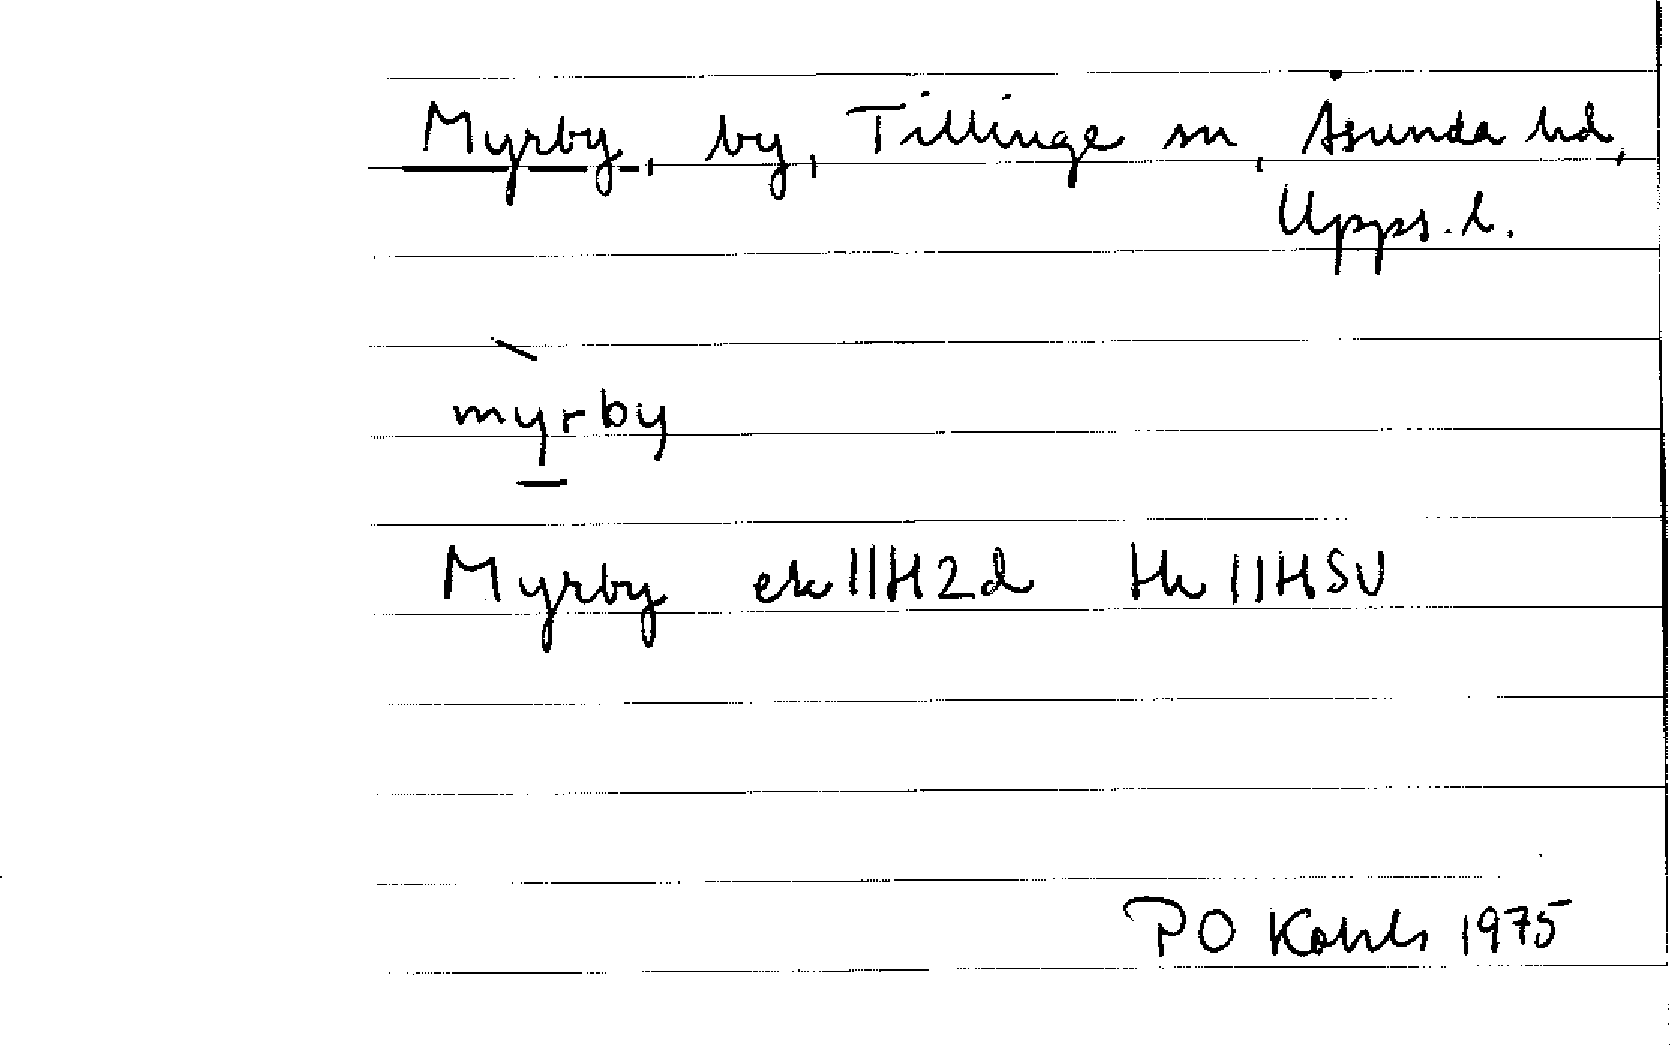 Myrby, by, Tillinge sn, Åsunda hd,
Upps. l.
mỳrby
Myrby ek 11H2d Hk 11HSV
PO Kåhrs 1975